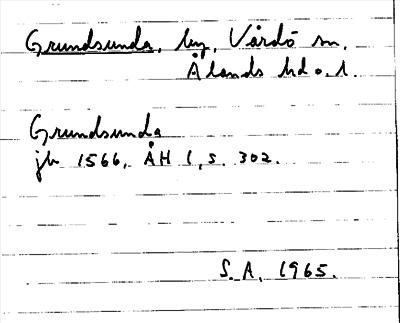 Grundsunda, by, Vårdö sn,
Ålands hd o. l.
Grundsunda
jb 1566, ÅH 1, s. 302.
S. A. 1965.